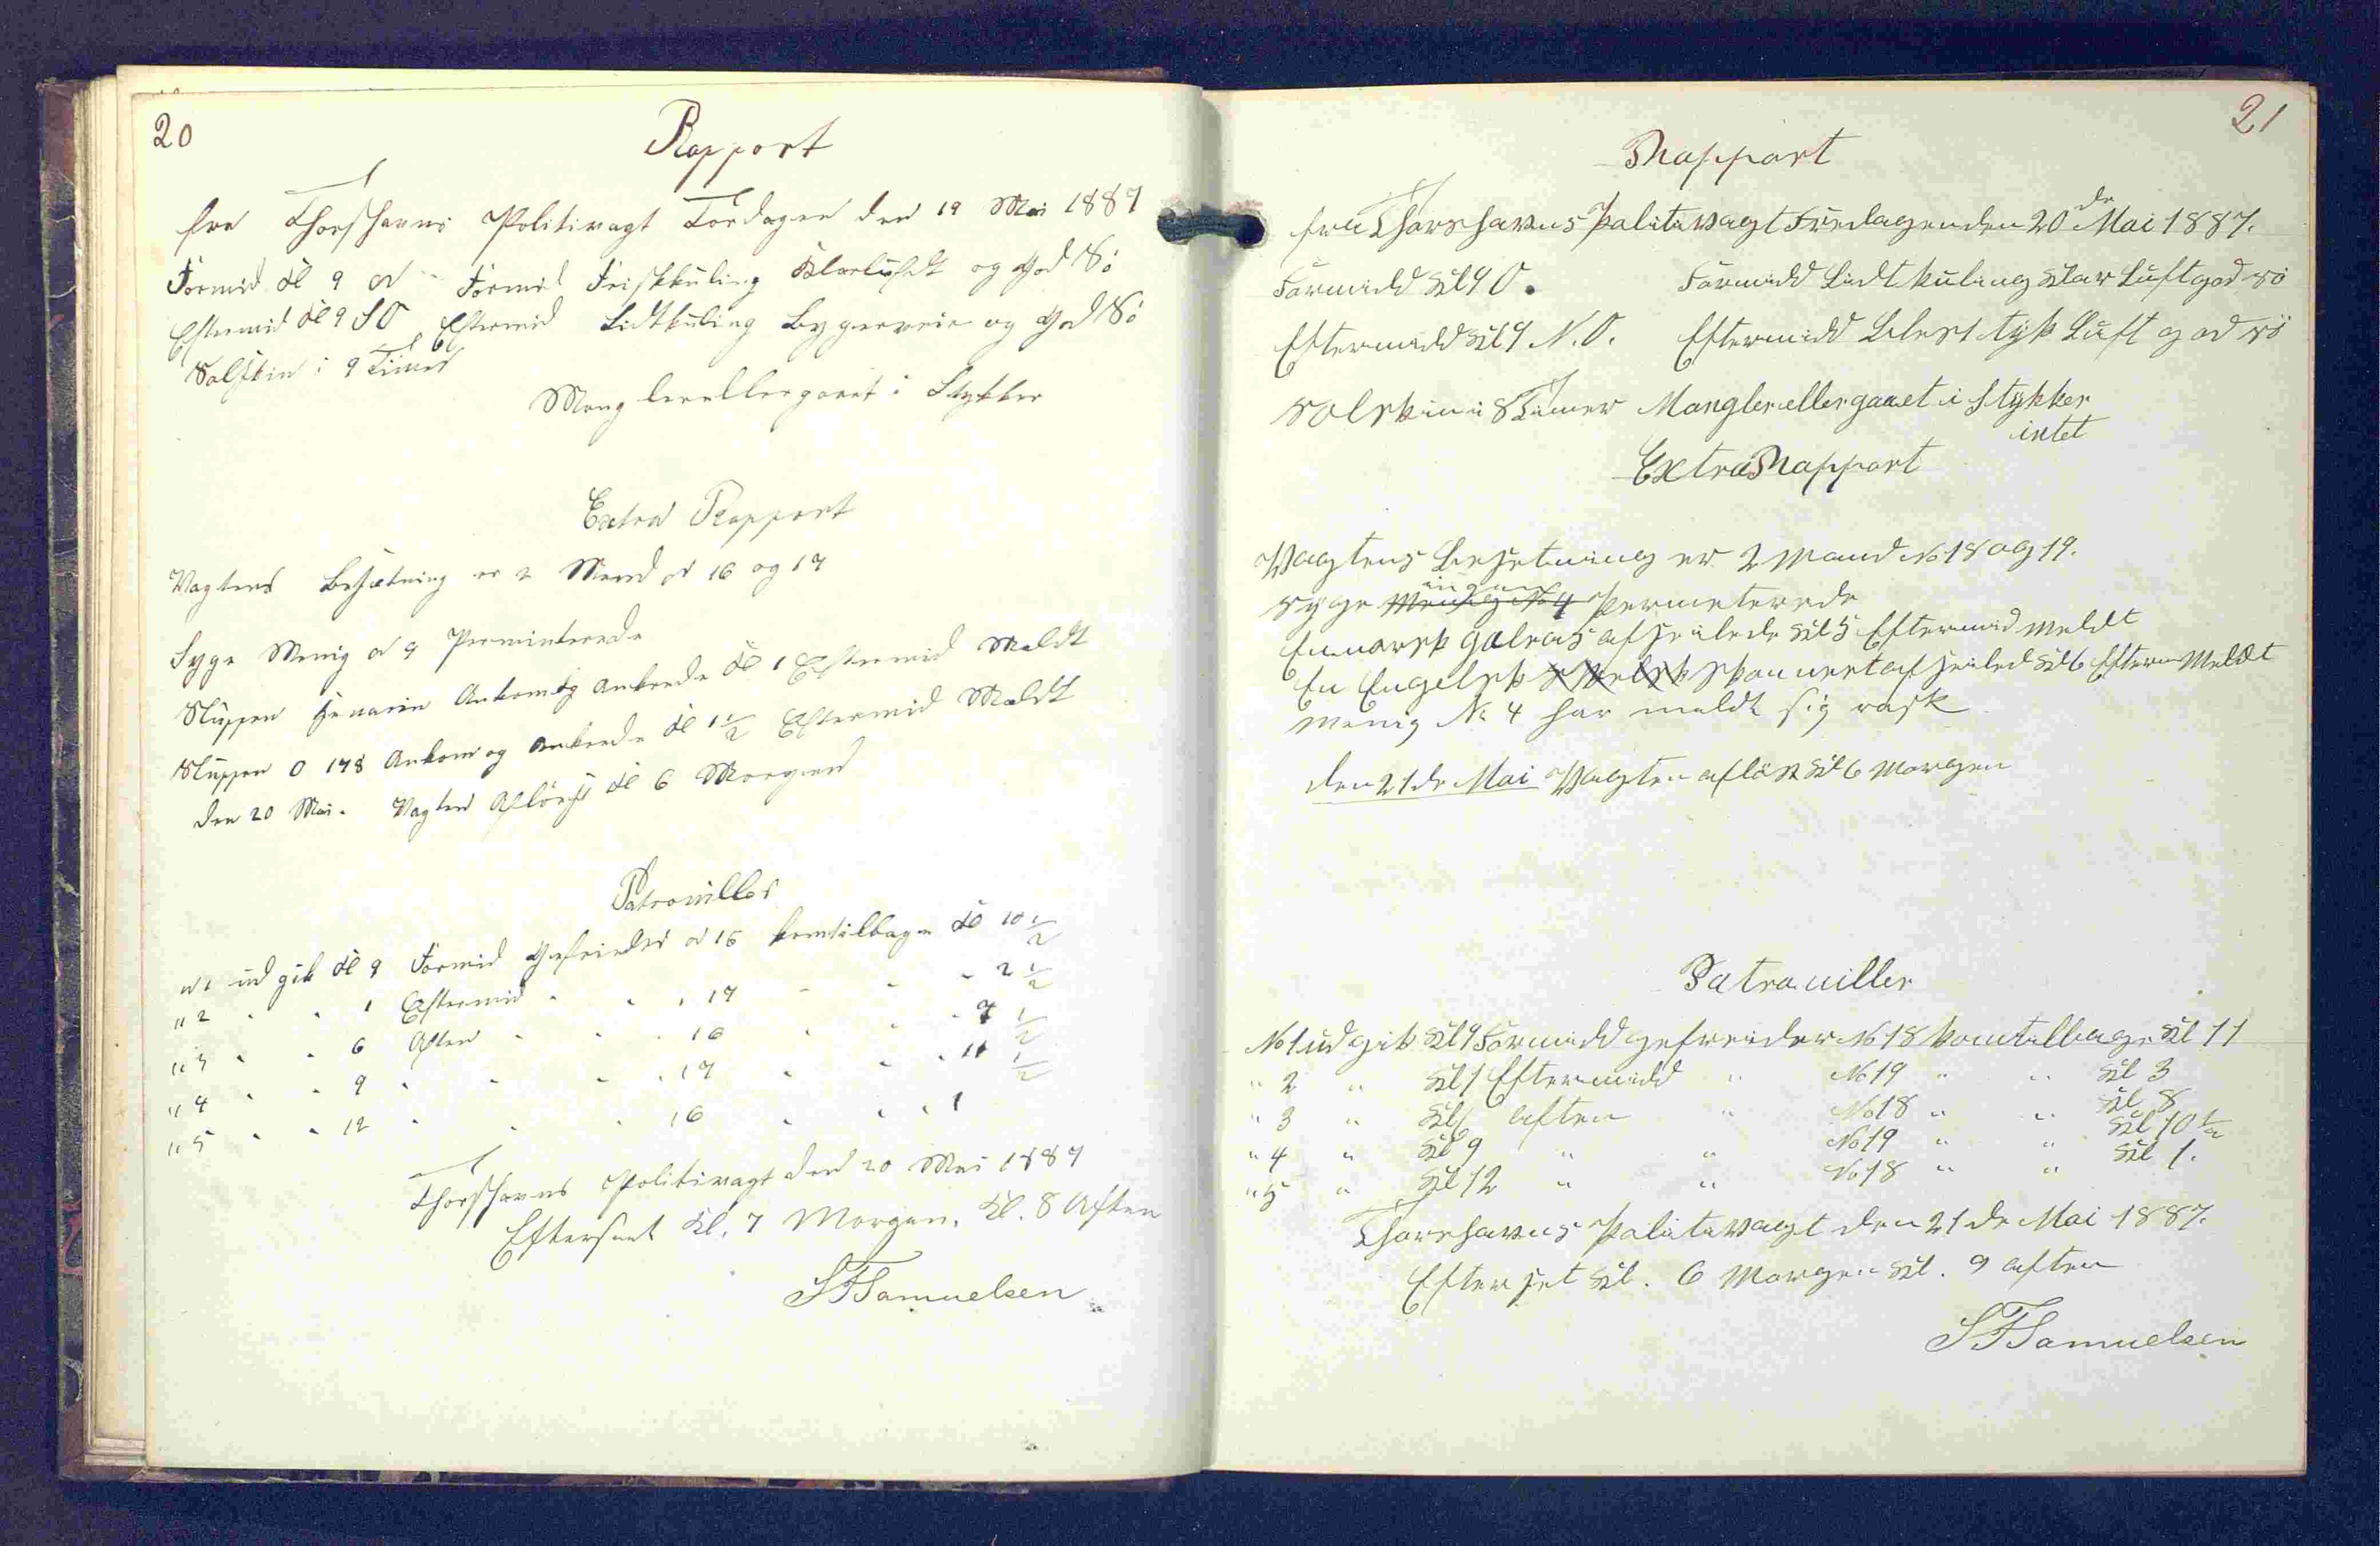 20
Rapport
fra Thorshavns Politivagt Torsdagen den 19 Mai 1887
Formid Kl 9 O Formid Friskkuling Klarlufdt og God Sö
Eftermid Kl 9 SO Eftermid Lidtkuling Bygerveir og God Sö
Solskin i 9 Timer
Mangler eller gaaet i Stykker
Extra Rapport
Vagtens Besætning er 2 Mend N 16 og 17
Syge Menig N 4 Perminterede
Sluppen Ankom og ankrede Kl 1 Eftermid Meldt
Sluppen O 178 Ankom og ankrede Kl 1½ Eftermid Meldt
den 20 Mai. Vagten Aflöst Kl 6 Morgen
Patrouiller
N 1 ud gik Kl 9 Formid Gefreider N 16 kom tilbage Kl 10½
" 2 " " 1 Eftermid " " " 17 " " " 2½
" 3 " " 6 Aften " " " 16 " " " 7½
" 4 " " 9 " " " " 17 " " " 11½
" 5 " " 12 " " " 16 " " " 1
Thorshavns Politivagt den 20 Mai 1887
Efterseet Kl. 7 Morgen. Kl. 8 Aften
SFSamuelsen
21
Rapport
fra Thorshavns Politivagt Fredagen den 20 de Mai 1887.
Formidd Kl 9 O. Formidd Lidt kuling Klar Luft god sö
Eftermidd Kl 9 N.O. Eftermidd Blest tyk Luft god sö
Solskin i 8 Timer Mangler eller gaaet i Stykker
intet
Extra Rapport
Vagtens Besetning er 2 Mand No 18 og 19.
Syge Menig No 4 ingen Permeterede
En norsk galeas afseilede Kl 5 Eftermid Meldt
En Engelsk Skonnert afseiled Kl 6 Efterm Meldt
Menig No 4 har meldt sig rask
den 21 de Mai Vagten aflöst Kl 6 Morgen
Patrouiller
No 1 ud gik Kl 9 Formidd gefreider No 18 kom tilbage Kl 11
" 2 " Kl 1 Eftermidd " No 19 " " Kl 3
" 3 " Kl 6 aften " No 18 " " Kl 8
" 4 " Kl 9 " " No 19 " " Kl 10½
" 5 " Kl 12 " " No 18 " " Kl 1.
Thorshavns Politivagt den 21 de Mai 1887.
Efterset Kl. 6 Morgen Kl. 9 aften
SFSamuelsen